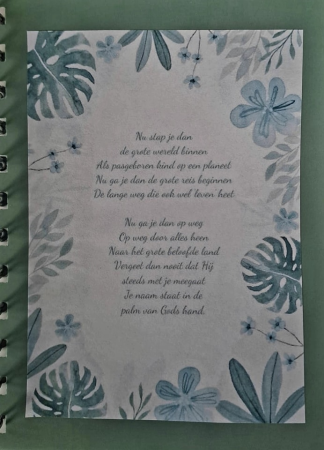 Nu stap je dan
de grote wereld binnen
Als pasgeboren kind op een planeet
Nu ga je dan de grote reis beginnen
De lange weg die ook wel leven heet.

Nu ga je dan op weg
Op weg door alles heen
Naar het grote beloofde land
Vergeet dan nooit dat Hij
steeds met je meegaat
Je naam staat in de
palm van Gods hand.